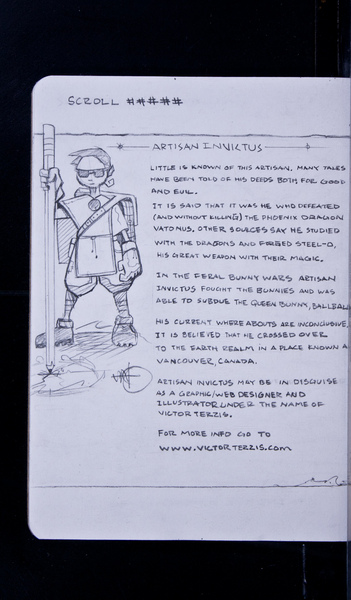 SCROLL #####
ARTISAN INVICTUS
LITTLE IS KNOWN OF THIS ARTISAN. MANY TALES
HAVE BEEN TOLD OF HIS DEEDS BOTH FOR GOOD
AND EVIL.
IT IS SAID THAT IT WAS HE WHO DEFEATED
(AND WITHOUT KILLING) THE PHOENIX DRAGON
VATONUS. OTHER SOURCES SAY HE STUDIED
WITH THE DRAGONS AND FORGED STEEL-O,
HIS GREAT WEAPON WITH THEIR MAGIC.
IN THE FERAL BUNNY WARS ARTISAN
INVICTUS FOUGHT THE BUNNIES AND WAS
ABLE TO SUBDUE THE QUEEN BUNNY,
HIS CURRENT WHERE ABOUTS ARE INCONCLUSIVE.
IT IS BELIEVED THAT HE CROSSED OVER
TO THE EARTH REALM IN A PLACE KNOWN A
VANCOUVER, CANADA.
ARTISAN INVICTUS MAY BE IN DISGUISE
AS A GRAPHIC/WEB DESIGNER AND
ILLUSTRATOR UNDER THE NAME OF
VICTOR TERZIS.
FOR MORE INFO GO TO
WWW.VICTORTERZIS.COM